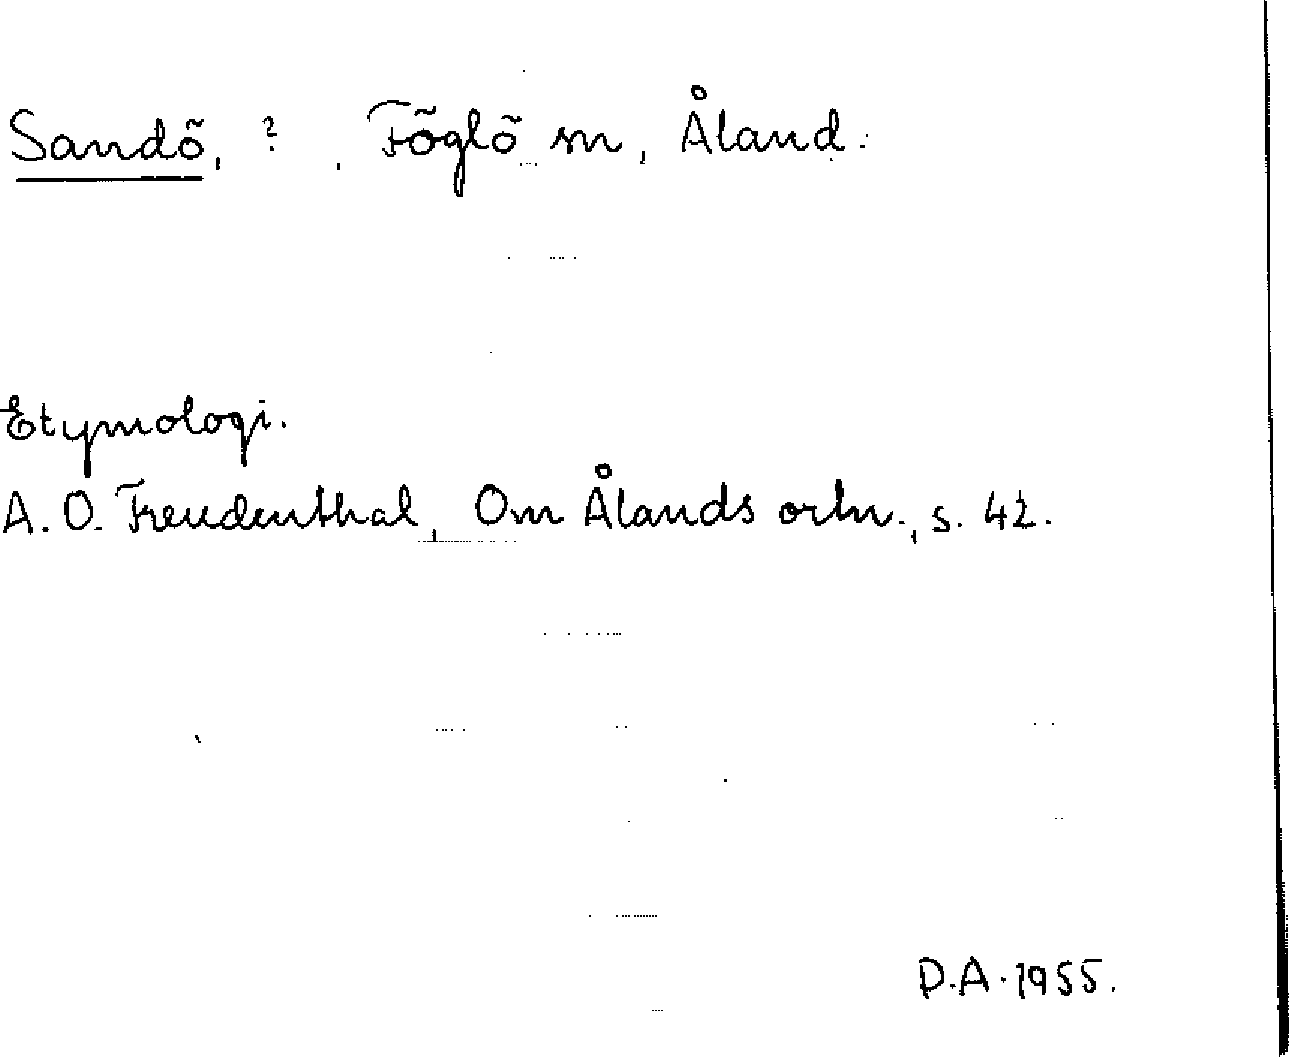 Sandö, ? , Föglö sn, Åland.
Etymologi.
A. O. Freudenthal, Om Ålands ortn., s. 42.
P.A. 1955.